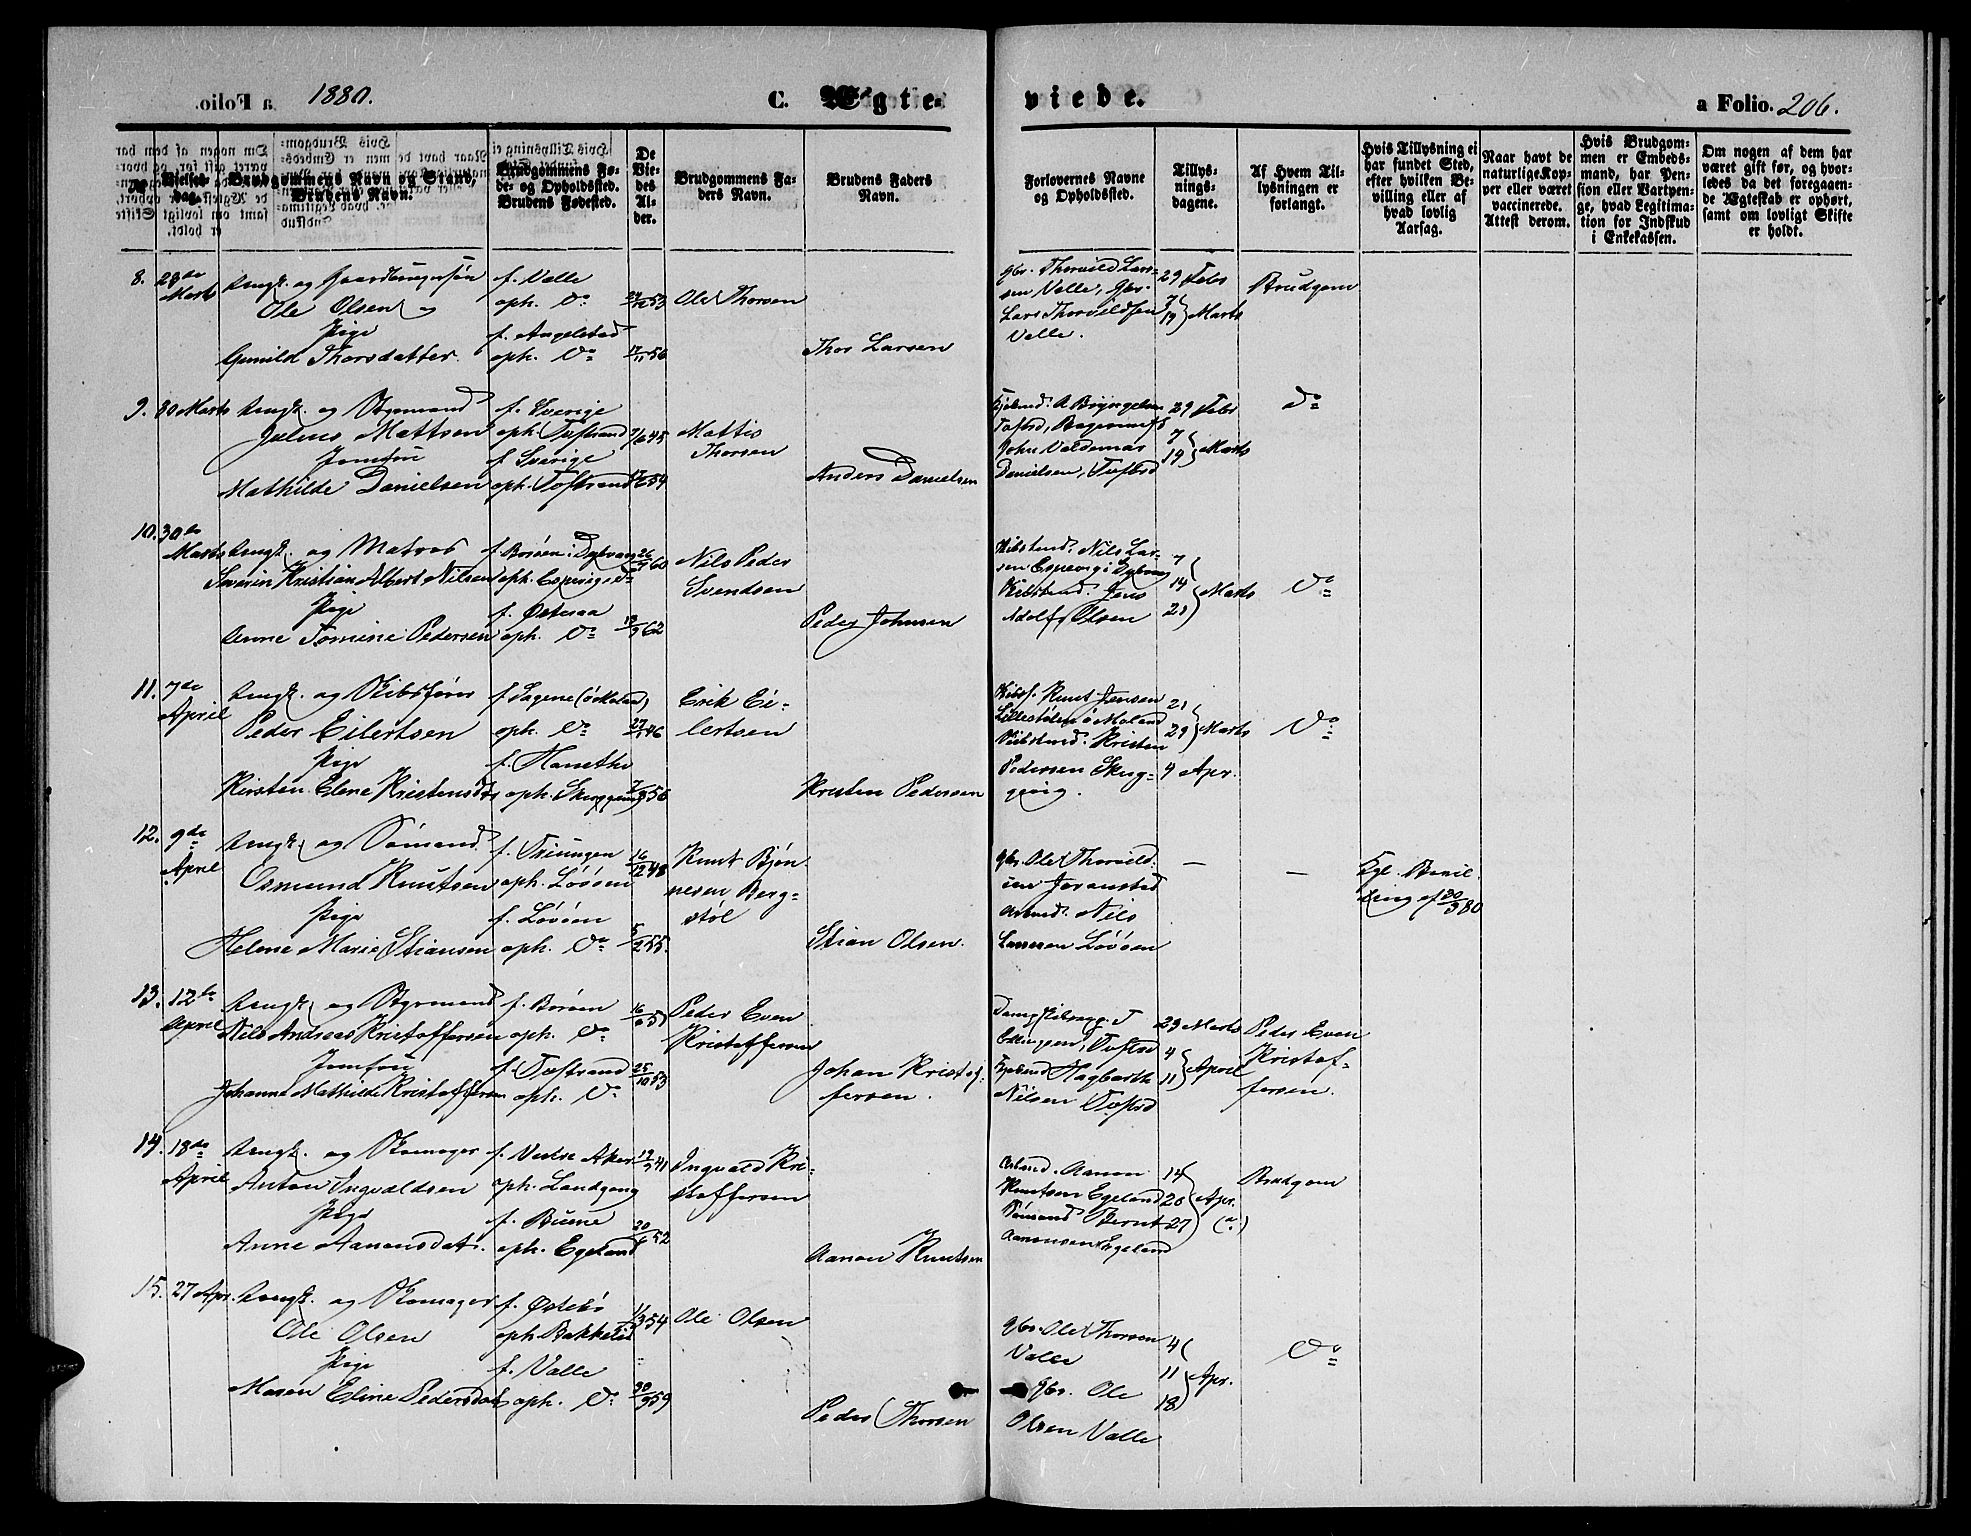 a Folio.
1880.
C. Ægte-
viede.
a Folio. 206.
No.
Vielses-
dag.
Brudgommens Navn og Stand,
Brudens Navn.
Brudgommens Fø-
de- og Opholdssted.
Brudens Fødested.
De
Vie-
des
Al-
der.
Brudgommens Fa-
ders Navn.
Brudens Faders
Navn.
Forlovernes Navne
og Opholdssted.
Tillys-
nings-
dagene.
Af Hvem Til-
lysningen er
forlangt.
Hvis Tillysning ei
har fundet Sted,
efter hvilken Be-
villing eller af
hvad lovlig
Aarsag.
Naar havt de
naturlige Kop-
per eller været
vaccinerede.
Attest derom.
Hvis Brudgom-
men er Embeds-
mand, har Pen-
sion eller Vartpen-
ge, hvad Legitima-
tion for Indskud
i Enkekassen.
Om nogen af dem har
været gift før, og hvor-
ledes da det foregaaen-
de Ægteskab er ophørt,
samt om lovligt Skifte
er holdt.
8.
28de
Marts
Ungk. og Gaardbrugersøn
Ole Olsen
og
Pige
Gunild Thorsdatter.
f. Valle
oph. Do
f. Angelstad
oph. Do
53
17/11 56
Ole Thorsen
Thor Larsen
Gbr. Thorvild Lar-
sen Valle, Gbr.
Lars Thorvildsen
Valle.
29 Febr
7
19 } Marts
Brudgom
9.
30 Marts
Ungk. og Styrmand
Julius Mattsen
Jomfru
Mathilde Danielsen
f. Sverige
oph. Tvestrand
f. Sverige
oph. Tvestrand
7/6 45
59
Mattis
Thorsen
Anders Danielsen
A. Bryngelsen
John Valdemar
Danielsen, Tvestrd
29 Febr
7
14 } Marts
Do
10.
30te
Marts
Ungk. og Matros
Severin Kristian Albert Nilsen
Pige
Anne Tomine Pedersen
f. Borøen i Dybvaag
oph. Espevig i Do
f. Østeraa
oph. Do
26/9 60
62
Nils Peder
Svendsen
Peder Johnsen
Skibstmd. Nils Lar-
sen Espevig i Dybvaag
Skibstmd. Jens
Adolf Olsen
7
14
21 } Marts
Do
11.
7de
April
Ungk. og Skibsfører
Peder Eilertsen
Pige
Kirsten Elene Kristensdtr
f. Sagene (Ø Moland)
oph. Do
f. Hanethe
oph. Skuggevig
46
56
Erik Ei-
lertsen
Kristen Pedersen
Skibsf. Knut Jensen
Lillestølen Ø Moland
Skibstmd. Kristen
Pedersen Skug-
gevig.
21
29 } Marts
4 Apr.
Do
12.
9de
April
Ungk. og Sømand
Osmund Knutsen
Pige
Helene Marie Stiansen
f. Triungen
oph. Løvøen
f. Løvøen
oph. Do
16/12 48
5/2 55.
Knut Bjøn-
nesen Berg-
støl
Stian Olsen.
Gbr. Ole Thorvild-
sen Joranstad
Arbmd. Nils
Larssen Løvøen
—
—
Kgl. Bevil
ling af 20/3 80
13.
12te
April
Ungk. og Styrmand
Nils Andreas Kristoffersen
Jomfru
Johanne Mathilde Kristoffersen
f. Borøen
oph. Do
f. Tvestrand
oph. Do
16/6 51
25/10 53
Peder Even
Kristoffersen
Johan Kristof-
fersen.
Ellingsen, Tvestrd
Hagbarth
Nilsen Tvestrd
29 Marts
4
11 } April
Peder Even
Kristof-
fersen.
14.
18de
April
Ungk. og Skomager
Anton Ingvaldsen
Pige
Anne Aanensdat.
f. Vestre Aker
oph. Landgang
f. Buene
oph. Egeland
41
52
Ingvald Kri-
stoffersen
Aanon Knutsen
Arbmd. Aanon
Knutsen Egeland
Sømand Bernt
Aanonsen Egeland
14
20
27 } Apr.
Brudgom
15.
27 Apr.
Ungk. og Skomager
Ole Olsen
Pige
Maren Eline Pedersdat
f. Østebø
oph. Bakkelid
f. Valle
oph. Do
11/3 54
30/9 59
Ole Olsen
Peder Thorsen
Gbr. Ole Thorsen
Valle
Gbr. Ole
Olsen Valle
4
11
18 } Apr.
Do